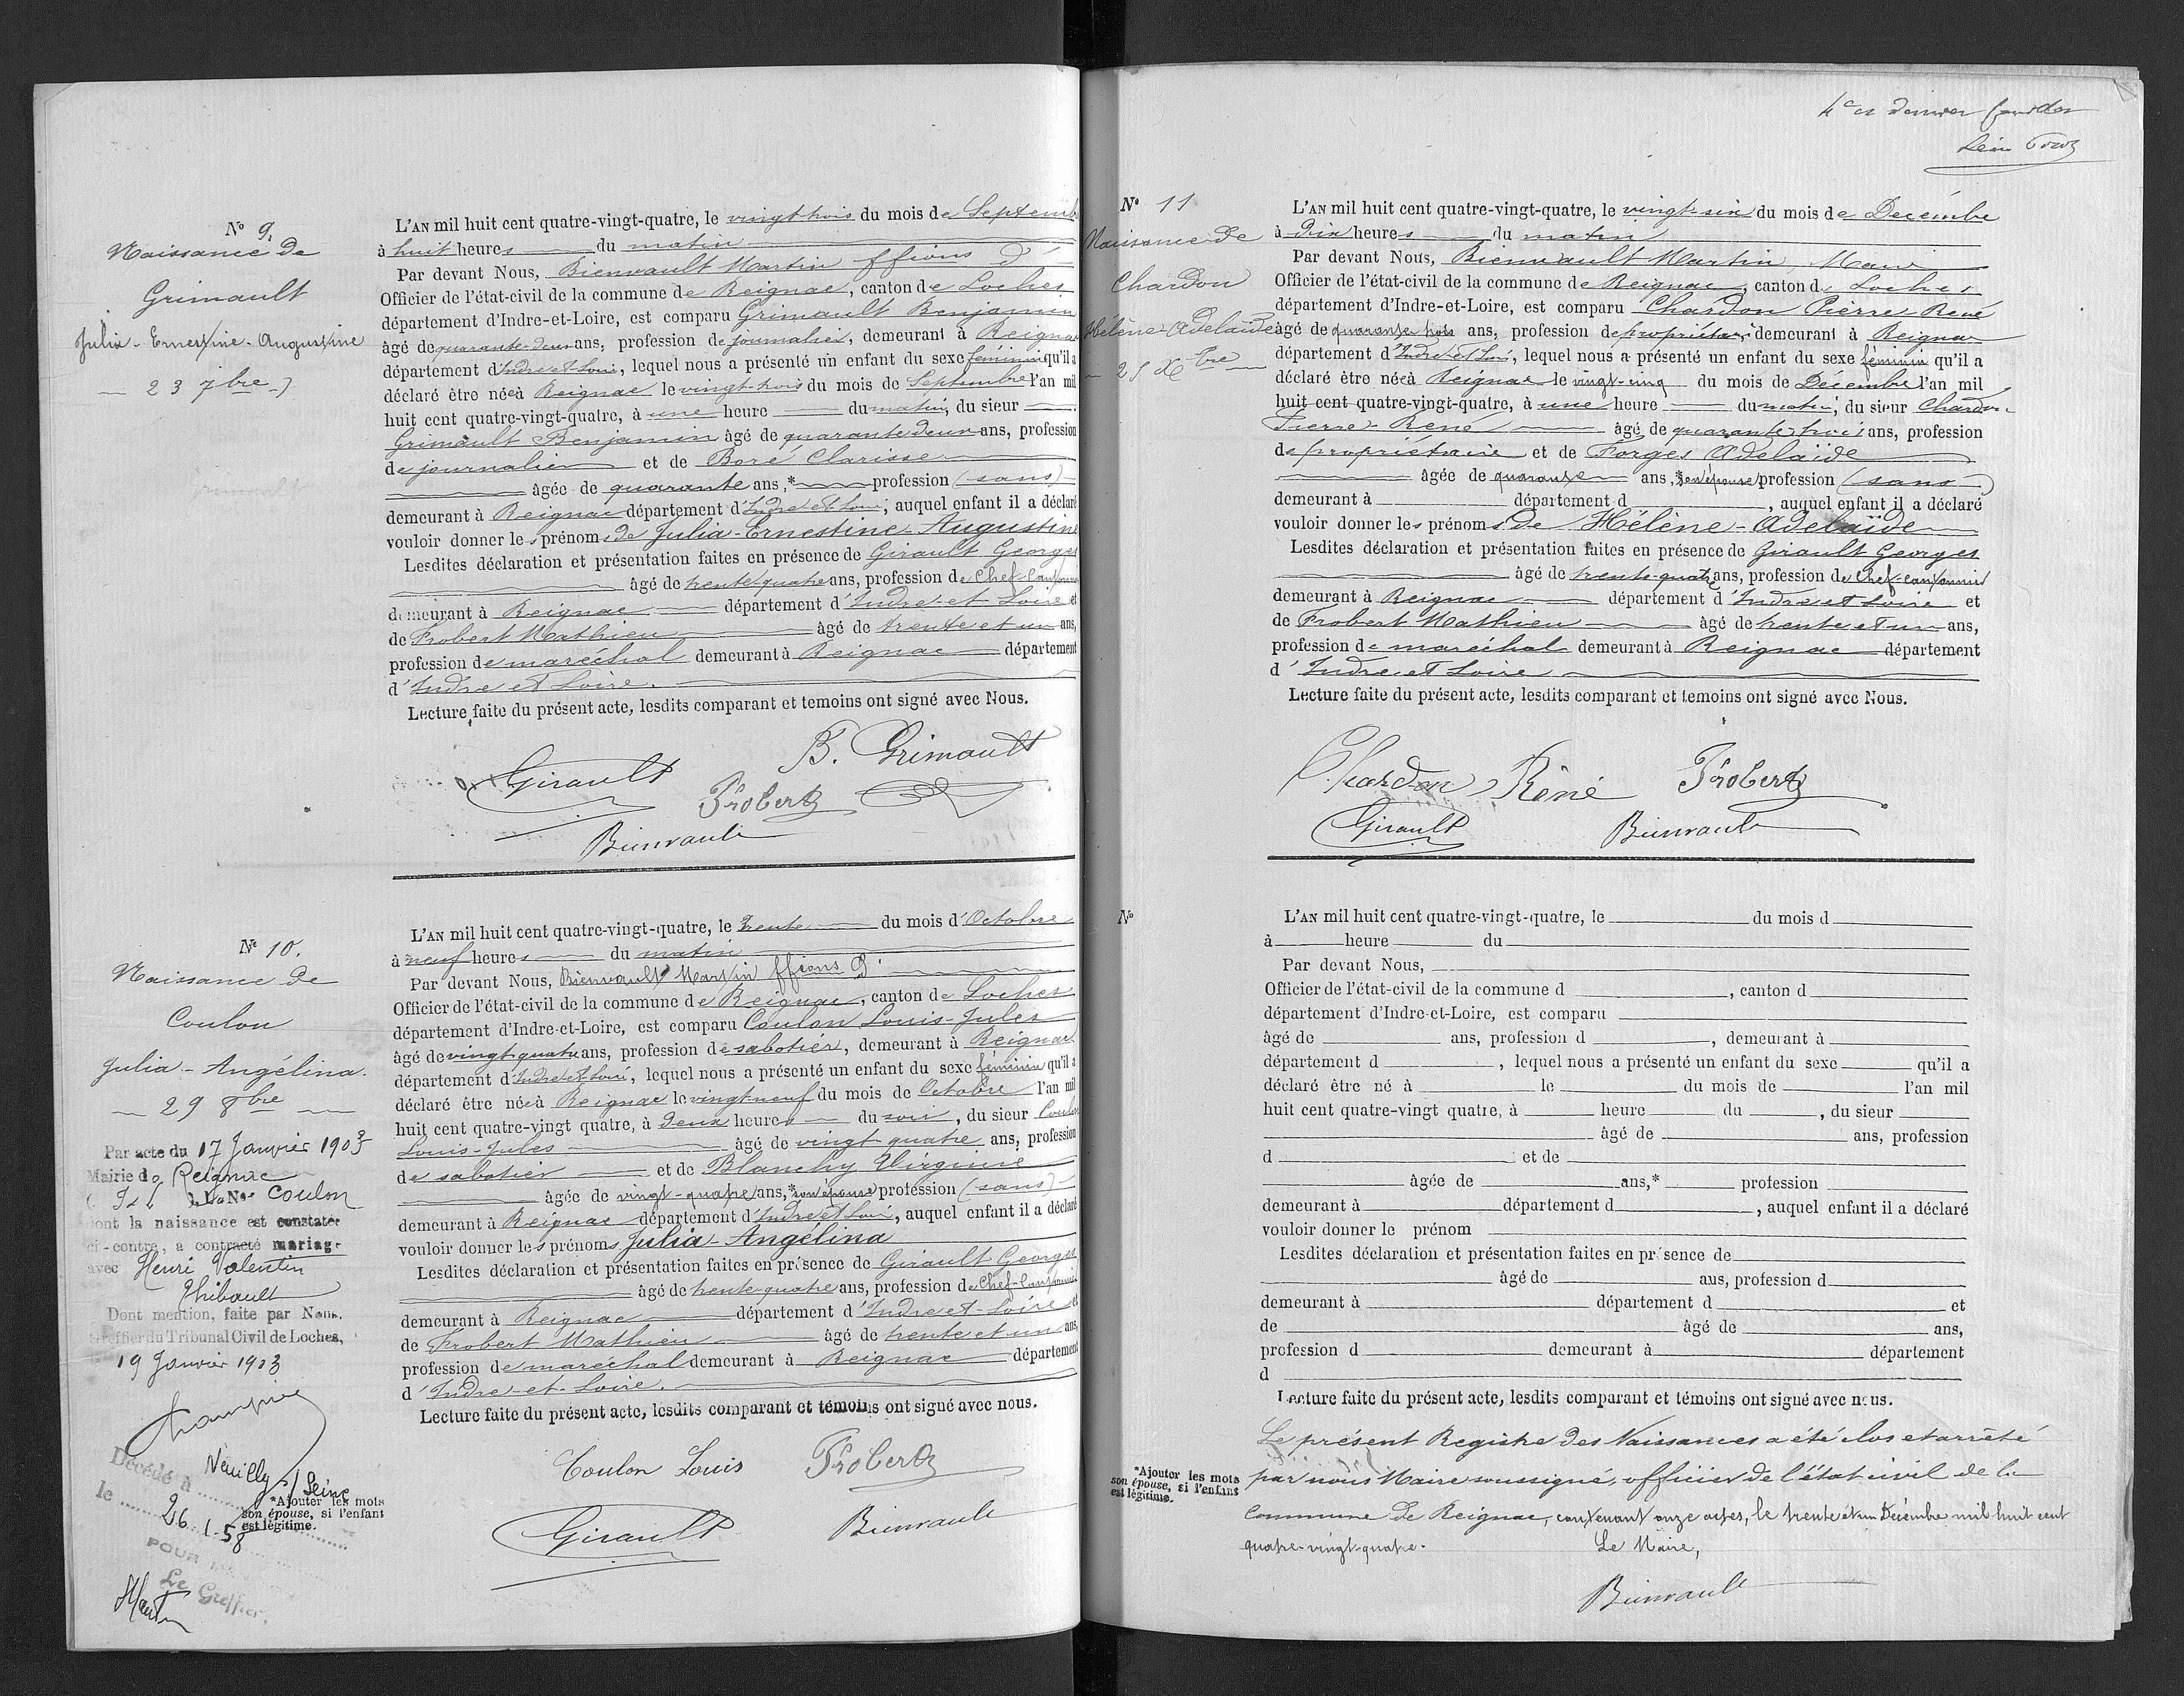 Nº 9.
Naissance de
Grimault
Julia - Ernestine - Augustine
— 23 7bre —
L'AN mil huit cent quatre-vingt-quatre, le vingt trois du mois de Septemb
à huit heures du matin
Par devant Nous, Bienvault Martin ffions d'
Officier de l'état-civil de la commune de Reignac, canton de Loches
département d'Indre-et-Loire, est comparu Grimault Benjamin
âgé de quarante-deux ans, profession de journalier, demeurant à Reignac
département d'Indre et Loire, lequel nous a présenté un enfant du sexe féminin qu'il a
déclaré être née à Reignac le vingt-trois du mois de Septembre l'an mil
huit cent quatre-vingt-quatre, à une heure du matin, du sieur
Grimault Benjamin âgé de quarante deux ans, profession
de journalier et de Boré Clarisse
âgée de quarante ans,* profession (sans)
demeurant à Reignac département d'Indre et Loire, auquel enfant il a déclaré
vouloir donner les prénoms de Julia-Ernestine-Augustine
Lesdites déclaration et présentation faites en présence de Girault Georges
âgé de trente-quatre ans, profession de Chef-Cantonnier
demeurant à Reignac département d'Indre-et-Loire et
de Frobert Mathieu âgé de trente et un ans,
profession de maréchal demeurant à Reignac département
d'Indre et Loire.
Lecture faite du présent acte, lesdits comparant et temoins ont signé avec Nous.
B. Grimault
Girault
Frobert
Bienvault
Nº 10.
Naissance de
Coulon
Julia - Angélina.
— 29 8bre —
Par acte du 17 Janvier 1903
Mairie de Reignac
La Née Coulon
dont la naissance est constatée
ci-contre, a contracté mariage
avec Henri Valentin
Thibault
Dont mention, faite par Nous.
Greffier du Tribunal Civil de Loches,
19 Janvier 1903
Décédé à Neuilly s/ Seine
le 26.1.58
POUR
Le Greffier,
*Ajouter les mots
son épouse, si l'enfant
est légitime.
L'AN mil huit cent quatre-vingt-quatre, le Trente du mois d'Octobre
à neuf heures du matin
Par devant Nous, Bienvault Martin ffions d'
Officier de l'état-civil de la commune de Reignac, canton de Loches
département d'Indre-et-Loire, est comparu Coulon Louis-Jules
âgé de vingt-quatre ans, profession de sabotier, demeurant à Reignac
département d'Indre et Loire, lequel nous a présenté un enfant du sexe féminin qu'il a
déclaré être née à Reignac le vingt neuf du mois de Octobre l'an mil
huit cent quatre-vingt quatre, à Deux heures du soir, du sieur Coulon
Louis-Jules âgé de vingt quatre ans, profession
de sabotier et de Blanchy Virginie
âgée de vingt-quatre ans,* son épouse profession (sans)
demeurant à Reignac département d'Indre et Loire, auquel enfant il a déclaré
vouloir donner les prénoms Julia-Angélina
Lesdites déclaration et présentation faites en présence de Girault Georges
âgé de trente-quatre ans, profession de Chef-Cantonnier
demeurant à Reignac département d'Indre et-Loire et
de Frobert Mathieu âgé de trente et un ans,
profession de maréchal demeurant à Reignac département
d'Indre-et-Loire.
Lecture faite du présent acte, lesdits comparant et témoins ont signé avec nous.
Coulon Louis Frobert
Girault Bienvault
4e et dernier
Nº 11
Naissance de
Chardon
Hélène-Adelaïde
— 25 Xbre —
L'AN mil huit cent quatre-vingt-quatre, le vingt-six du mois de Décembre
à Dix heures du matin
Par devant Nous, Bienvault Martin, Maire
Officier de l'état-civil de la commune de Reignac, canton de Loches
département d'Indre-et-Loire, est comparu Chardon Pierre-René
âgé de quarante trois ans, profession de propriétaire demeurant à Reignac
département d'Indre et Loire, lequel nous a présenté un enfant du sexe féminin qu'il a
déclaré être née à Reignac le vingt-cinq du mois de Décembre l'an mil
huit cent quatre-vingt-quatre, à une heure du matin, du sieur Chardon
Pierre-René âgé de quarante trois ans, profession
de propriétaire et de Forges Adelaïde
âgée de quarante ans,* son épouse profession (sans)
demeurant à département d , auquel enfant il a déclaré
vouloir donner les prénoms de Hélène-Adelaïde
Lesdites déclaration et présentation faites en présence de Girault Georges
âgé de trente-quatre ans, profession de Chef-cantonnier
demeurant à Reignac département d'Indre et Loire et
de Frobert Mathieu âgé de trente et un ans,
profession de maréchal demeurant à Reignac département
d'Indre et Loire
Lecture faite du présent acte, lesdits comparant et temoins ont signé avec Nous.
Chardon René Frobert
Girault Bienvault
Nº
L'AN mil huit cent quatre-vingt-quatre, le du mois d
à heure du
Par devant Nous,
Officier de l'état-civil de la commune d , canton d
département d'Indre-et-Loire, est comparu
âgé de ans, profession d , demeurant à
département d , lequel nous a présenté un enfant du sexe qu'il a
déclaré être né à le du mois de l'an mil
huit cent quatre-vingt quatre, à heure du , du sieur
âgé de ans, profession
d et de
âgée de ans,* profession
demeurant à département d , auquel enfant il a déclaré
vouloir donner le prénom
Lesdites déclaration et présentation faites en présence de
âgé de ans, profession d
demeurant à département d et
de âgé de ans,
profession d demeurant à département
d
Lecture faite du présent acte, lesdits comparant et témoins ont signé avec nous.
*Ajouter les mots
son épouse, si l'enfant
est légitime.
Le présent Registre des Naissances a été clos et arrêté
par nous Maire soussigné, officier de l'état civil de la
Commune de Reignac, contenant onze actes, le trente et un Décembre mil huit cent
quatre-vingt-quatre. Le Maire,
Bienvault